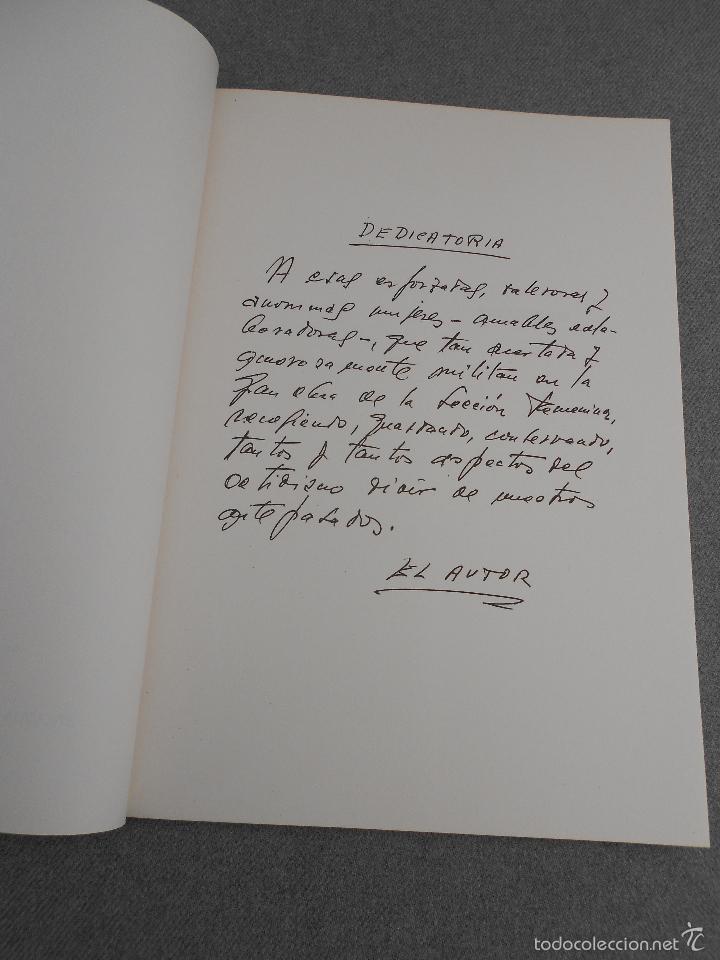 DEDICATORIA
A esas esforzadas, valerosas y
anonimas mujeres - amables cola-
boradoras -, que tan acertada y
generosamente militan en la
gran obra de la Sección Femenina,
recogiendo, guardando, conservando,
tantos y tantos aspectos del
cotidiano vivir de nuestros
antepasados.
EL AUTOR
todocoleccion.net TC